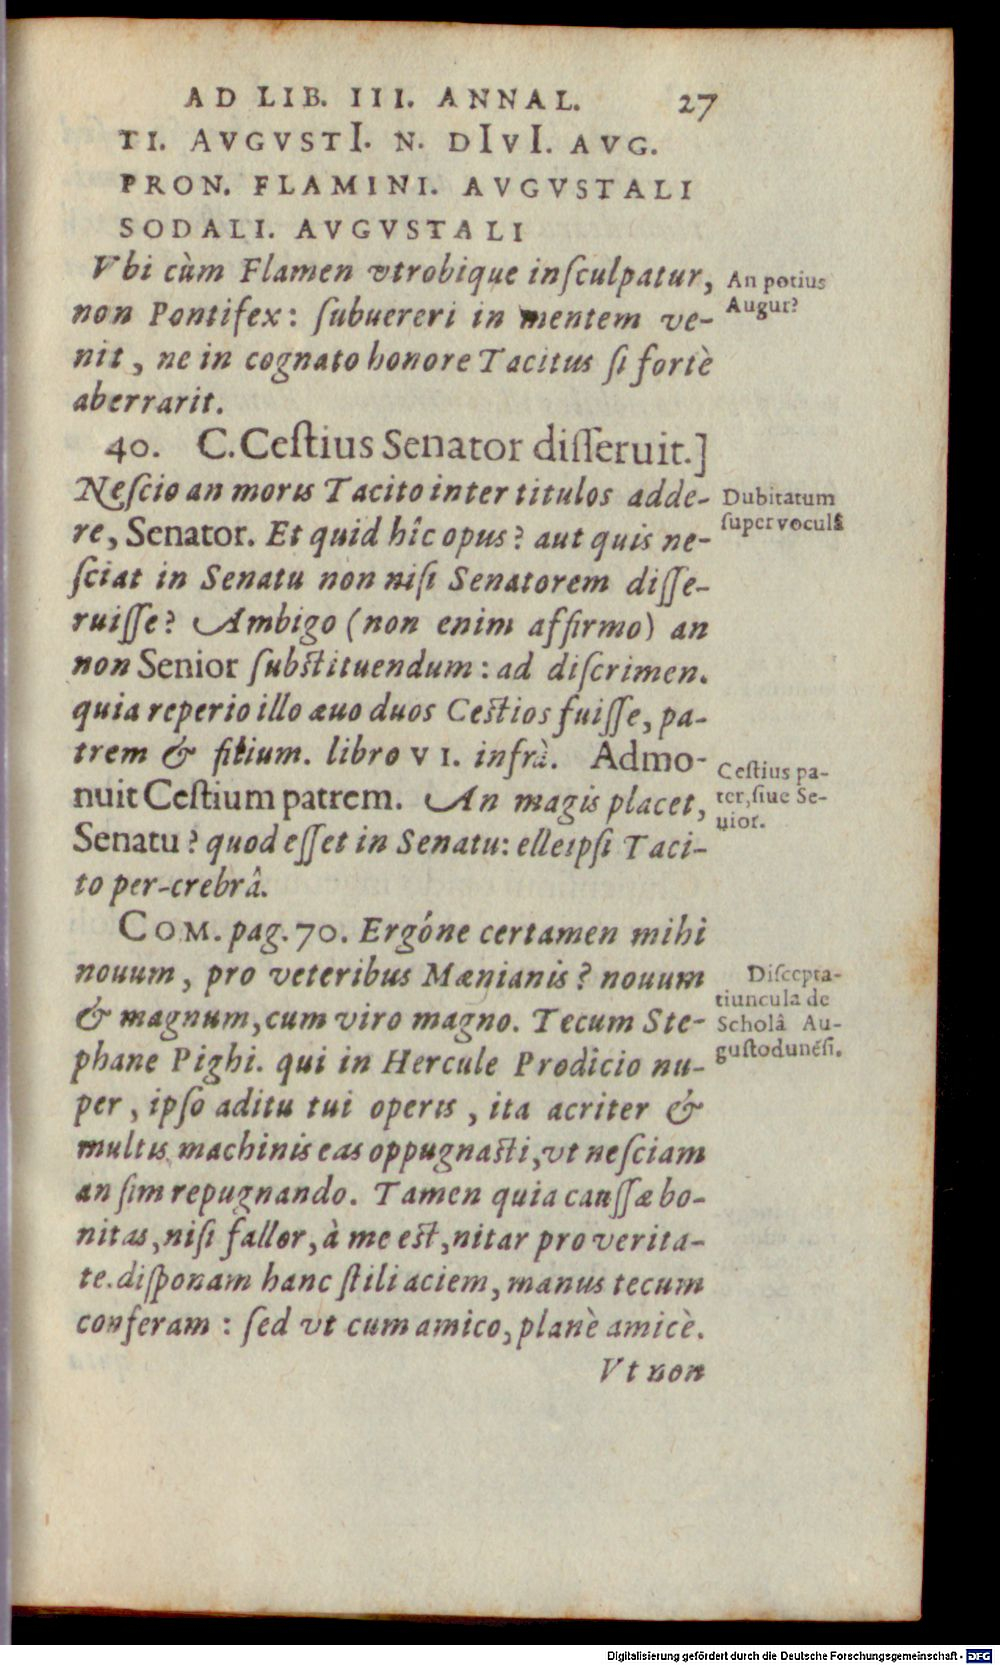 AD LIB. III. ANNAL. 27
TI. AVGVSTI. N. DIVI. AVG.
PRON. FLAMINI. AVGVSTALI
SODALI. AVGVSTALI
Vbi cùm Flamen vtrobique inſculpatur,
non Pontifex: ſubuereri in mentem ve-
nit, ne in cognato honore Tacitus ſi fortè
aberrarit.
An potius
Augur?
40. C. Ceſtius Senator diſſeruit.]
Neſcio an moris Tacito inter titulos adde-
re, Senator. Et quid hîc opus? aut quis ne-
ſciat in Senatu non niſi Senatorem diſſe-
ruiſſe? Ambigo (non enim affirmo) an
non Senior ſubſtituendum: ad diſcrimen.
quia reperio illo æuo duos Ceſtios fuiſſe, pa-
trem & filium. libro VI. infrà. Admo-
nuit Ceſtium patrem. An magis placet,
Senatu? quod eſſet in Senatu: elleipſi Taci-
to per-crebrâ.
Dubitatum
ſuper voculâ
Ceſtius pa-
ter, ſiue Se-
nior.
COM. pag. 70. Ergóne certamen mihi
nouum, pro veteribus Mænianis? nouum
& magnum, cum viro magno. Tecum Ste-
phane Pighi. qui in Hercule Prodicio nu-
per, ipſo aditu tui operis, ita acriter &
multis machinis eas oppugnaſti, vt neſciam
an ſim repugnando. Tamen quia cauſſæ bo-
nitas, niſi fallor, à me eſt, nitar pro verita-
te. diſponam hanc ſtili aciem, manus tecum
conferam: ſed vt cum amico, planè amicè.
Diſcepta-
tiuncula de
Scholâ Au-
guſtodunēſi.
Vt non
Digitalisierung gefördert durch die Deutsche Forschungsgemeinschaft - DFG